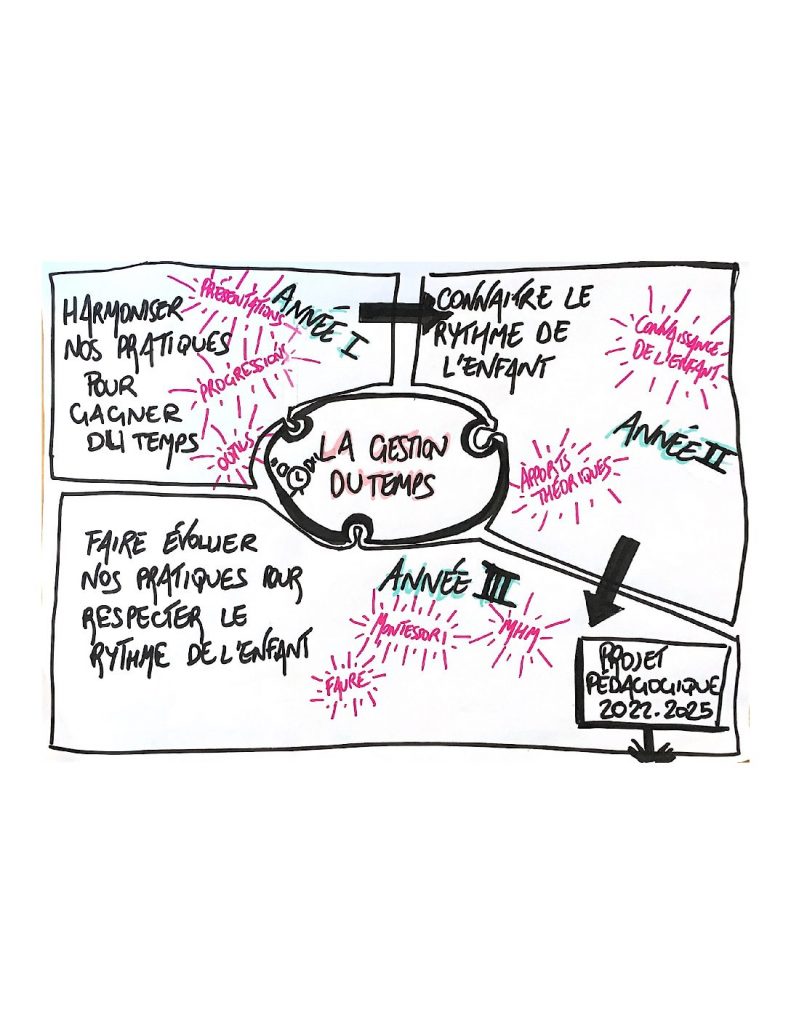 HARMONISER
NOS PRATIQUES
POUR
GAGNER
DU TEMPS
PRÉSENTATIONS
PROGRESSIONS
OUTILS
ANNÉE I
CONNAITRE LE
RYTHME DE
L'ENFANT
CONNAISSANCE
DE L'ENFANT
ANNÉE II
APPORTS
THÉORIQUES
LA GESTION
DU TEMPS
FAIRE ÉVOLUER
NOS PRATIQUES POUR
RESPECTER LE
RYTHME DE L'ENFANT
ANNÉE III
MONTESSORI
MHM
FAURE
PROJET
PÉDAGOGIQUE
2022.2025